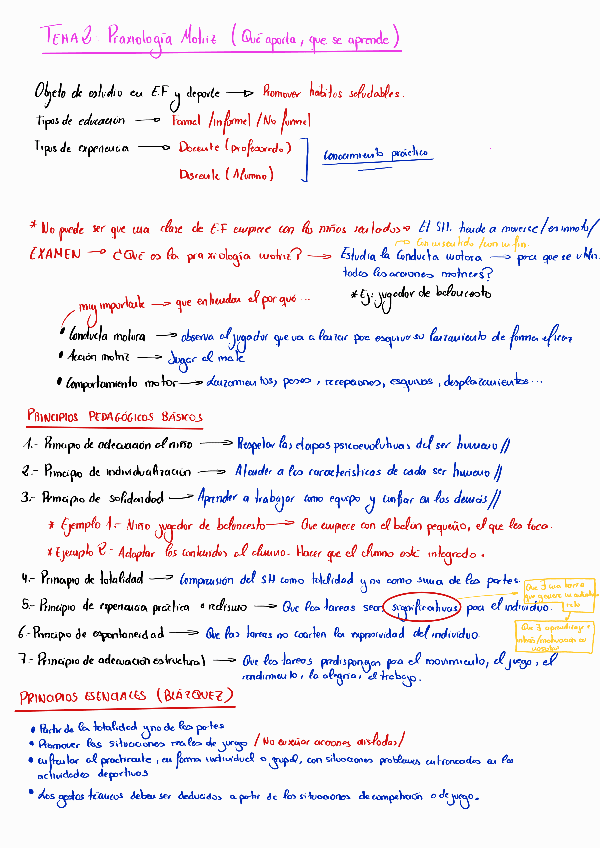 TEMA 2 Praxiología Motriz (Qué aporta, que se aprende)
Objeto de estudio en E.F y deporte → Promover habitos saludables.
Tipos de educación → Formal / Informal / No formal
Tipos de experiencia → Docente (profesorado)
Discente (Alumno)
Conocimiento práctico
* No puede ser que una clase de E.F empiece con los niños sentados → El SH. tiende a moverse /
→ Con un sentido / con un fin.
EXAMEN → ¿QUÉ es la praxiología motriz? → Estudia la Conducta motora → para que se
todas las acciones motrices?
muy importante → que entiendan el por qué ...
* Ej: jugador de baloncesto
• Conducta motora → observa al jugador que va a lanzar para esquivar su lanzamiento de forma eficaz
• Acción motriz → Jugar al mate
• Comportamiento motor → Lanzamientos, pases, recepciones, esquivas, desplazamientos...
PRINCIPIOS PEDAGÓGICOS BÁSICOS
1.- Principio de adecuación al niño → Respetar las etapas psicoevolutivas del ser humano //
2.- Principio de individualización → Atender a las características de cada ser humano //
3.- Principio de solidaridad → Aprender a trabajar como equipo y confiar en los demás //
* Ejemplo 1.- Niño jugador de baloncesto → Que empiece con el balón pequeño, el que les toca.
* Ejemplo 2.- Adaptar los contenidos al alumno. Hacer que el alumno esté integrado.
4.- Principio de totalidad → Comprensión del SH como totalidad y no como suma de las partes.
5.- Principio de experiencia práctica o realismo → Que las tareas sean significativas para el individuo.
6.- Principio de espontaneidad → Que las tareas no coarten la expresividad del individuo
7.- Principio de adecuación estructural → Que las tareas predispongan para el movimiento, el juego, el
rendimiento, la alegría, el trabajo.
PRINCIPIOS ESENCIALES (BLÁZQUEZ)
• Partir de la totalidad y no de las partes
• Promover las situaciones reales de juego / No enseñar acciones aisladas /
• enfrentar al practicante, en forma individual o grupal, con situaciones problemas entroncadas en las
actividades deportivas
• Los gestos técnicos deben ser deducidos a partir de las situaciones de competición o de juego.